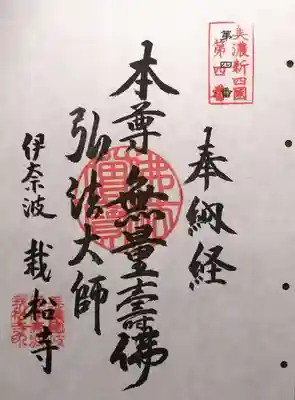 美濃新四國
第四番
奉納経
本尊無量壽佛
弘法大師
伊奈波 栽松寺